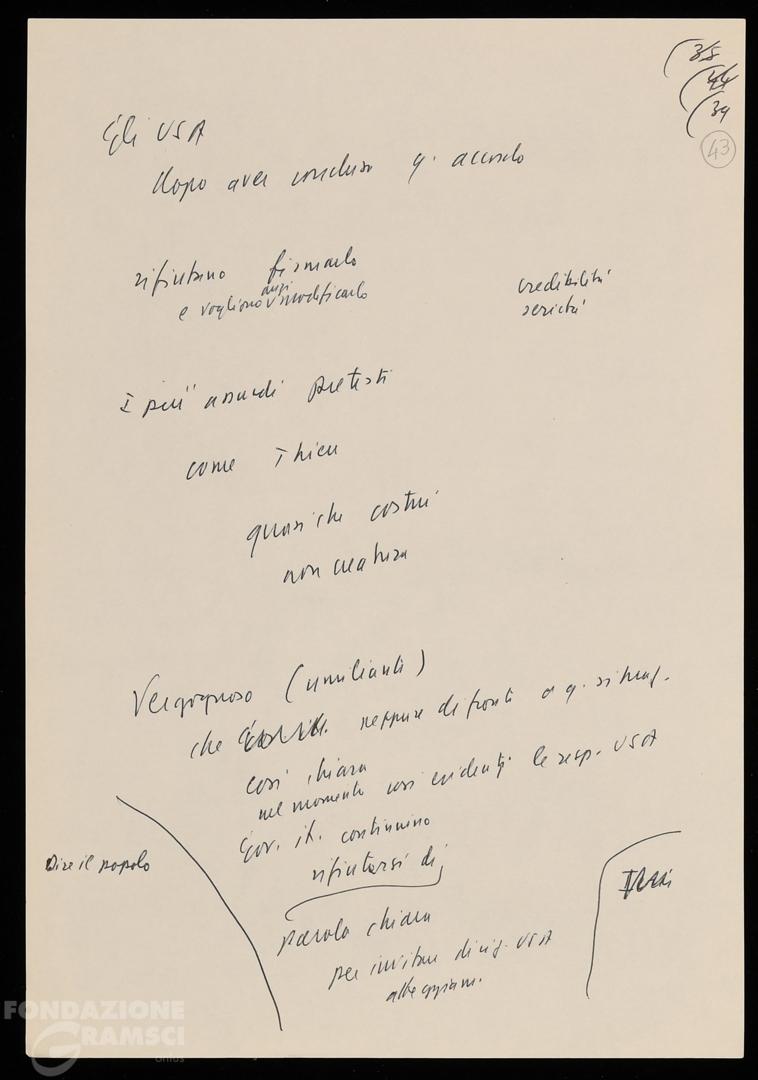 (35
(44
(39
43
Gli USA
dopo aver concluso q. accordo
rifiutano firmarlo
e vogliono anzi modificarlo
credibilità
serietà
I più assurdi pretesti
come Thieu
quasi che costui
non creatura
Vergognoso (umiliante)
che Gov. it. neppure di fronte a q. situaz.
così chiara
nel momento così evidenti le resp. USA
Gov. it. continuino
rifiutarsi di
Dire il popolo
parola chiara
per invitare dirig. USA
FONDAZIONE
GRAMSCI
onlus